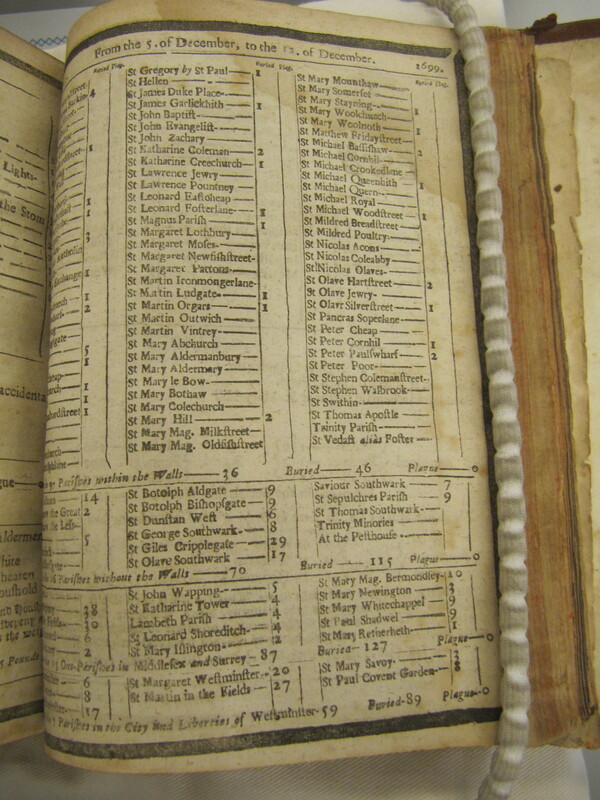 From the 5. of December, to the 12. of December. 1699.
Buried Plag. Buried Plag. Buried Plag.
St Gregory by St Paul 1
St Hellen
St James Duke Place
St James Garlickhith 1
St John Baptist
St John Evangelist
St John Zachary
St Katharine Coleman 2
St Katharine Creechurch 1
St Lawrence Jewry
St Lawrence Pountney
St Leonard Eastcheap
St Leonard Fosterlane 1
St Magnus Parish 1
St Margaret Lothbury
St Margaret Moses
St Margaret Newfishstreet
St Margaret Pattons
St Martin Ironmongerlane
St Martin Ludgate 1
St Martin Orgars 1
St Martin Outwich
St Martin Vintrey
St Mary Abchurch
St Mary Aldermanbury
St Mary Aldermary
St Mary le Bow
St Mary Bothaw
St Mary Colechurch
St Mary Hill 2
St Mary Mag. Milkstreet
St Mary Mag. Oldfishstreet
St Mary Mounthaw
St Mary Somerset
St Mary Stayning
St Mary Woolchurch 1
St Mary Woolnoth
St Matthew Fridaystreet
St Michael Bassishaw
St Michael Cornhil
St Michael Crookedlane
St Michael Queenhith 1
St Michael Quern
St Michael Royal
St Michael Woodstreet 1
St Mildred Breadstreet
St Mildred Poultry
St Nicolas Acons
St Nicolas Coleabby
St Nicolas Olaves
St Olave Hartstreet 2
St Olave Jewry
St Olave Silverstreet 1
St Pancras Soperlane
St Peter Cheap
St Peter Cornhil 1
St Peter Paulswharf 2
St Peter Poor
St Stephen Colemanstreet
St Stephen Walbrook
St Swithin
St Thomas Apostle
Trinity Parish
St Vedast alias Foster
Parishes within the Walls 36 Buried 46 Plague 0
St Botolph Aldgate
St Botolph Bishopsgate
St Dunstan West
St George Southwark 8
St Giles Cripplegate 29
St Olave Southwark 17
Saviour Southwark 7
St Sepulchres Parish 9
St Thomas Southwark
Trinity Minories
At the Pesthouse
Parishes without the Walls 70 Buried 115 Plague 0
St John Wapping 5
St Katharine Tower 4
Lambeth Parish 4
St Leonard Shoreditch 4
St Mary Islington 2
St Mary Mag. Bermondsey
St Mary Newington
St Mary Whitechappel 9
St Paul Shadwel 9
St Mary Retherheth 1
Out-Parishes in Middlesex and Surrey 87 Buried 127 Plague 0
St Margaret Westminster 20
St Martin in the Fields 27
St Mary Savoy
St Paul Covent Garden 8
Parishes in the City and Liberties of Westminster 59 Buried 89 Plague 0